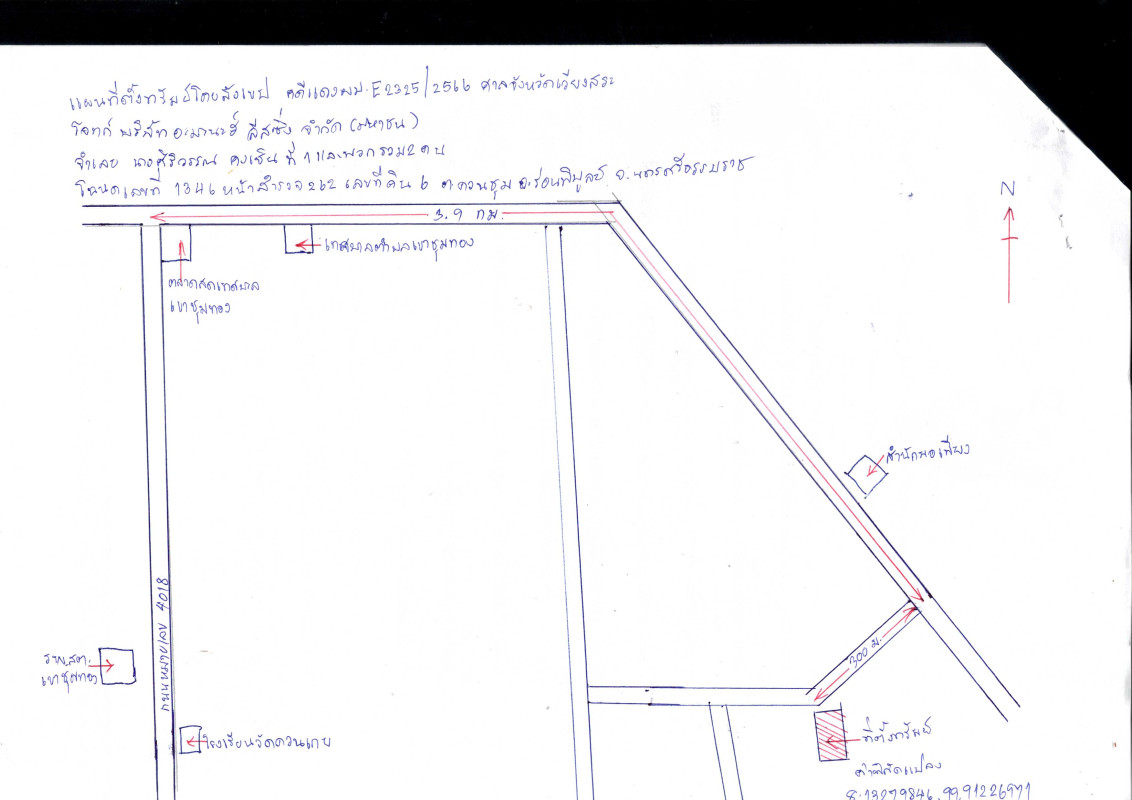 แผนที่ตั้งทรัพย์โดยสังเขป คดีแดงผบ.E2325/2566 ศาลจังหวัดเวียงสระ
โจทก์ บริษัท อะมานะฮ์ ลิสซิ่ง จำกัด (มหาชน)
จำเลย นางศิริวรรณ คงเซ็น ที่ 1 และพวกรวม 2 คน
โฉนดเลขที่ 1346 หน้าสำรวจ 262 เลขที่ดิน 6 ต.ควนชุม อ.ร่อนพิบูลย์ จ.นครศรีธรรมราช
N
3.9 กม.
เทศบาลตำบลเขาชุมทอง
ตลาดสดเทศบาล
เขาชุมทอง
สำนักพอเพียง
ถนนหมายเลข 4018
300 ม.
รพ.สต.
เขาชุมทอง
โรงเรียนวัดควนเกย
ที่ตั้งทรัพย์
ค่าพิกัดแปลง
8.13279846, 99.91226971